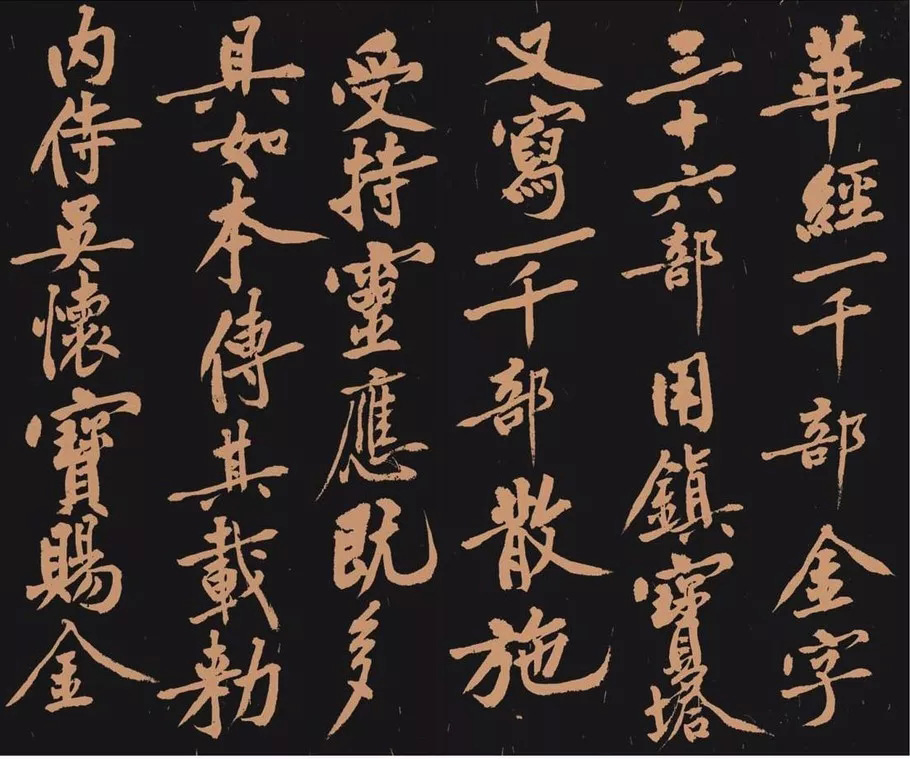 華經一千部金字
三十六部用鎮寶塔
又寫一千部散施
受持靈應既多
具如本傳其載勅
内侍吳懷寶賜金